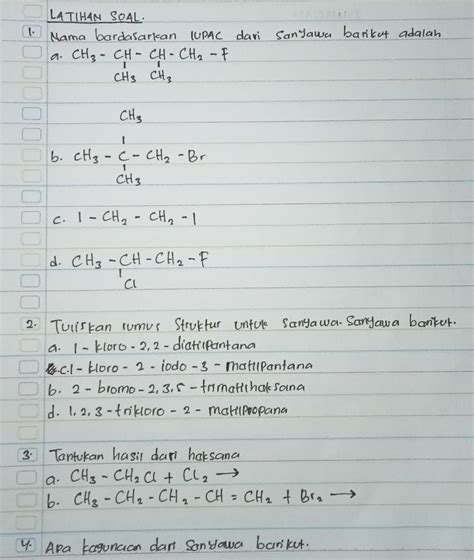 LATIHAN SOAL.
1. Nama bardasarkan IUPAC dari sanyawa barikut adalah
a. CH3 - CH - CH - CH2 - F
CH3 CH3
CH3
b. CH3 - C - CH2 - Br
CH3
c. I - CH2 - CH2 - I
d. CH3 - CH - CH2 - F
Cl
2. Tuliskan rumus Struktur untuk sanyawa-sanyawa barikut.
a. 1 - kloro - 2,2 - diatilpantana
c. 1 - kloro - 2 - iodo - 3 - matilpantana
b. 2 - bromo - 2,3,5 - trimatilhaksana
d. 1,2,3 - trikloro - 2 - matilpropana
3. Tantukan hasil dari haksana
a. CH3 - CH2Cl + Cl2 →
b. CH3 - CH2 - CH2 - CH = CH2 + Br2 →
4. Apa kagunaan dari sanyawa barikut.